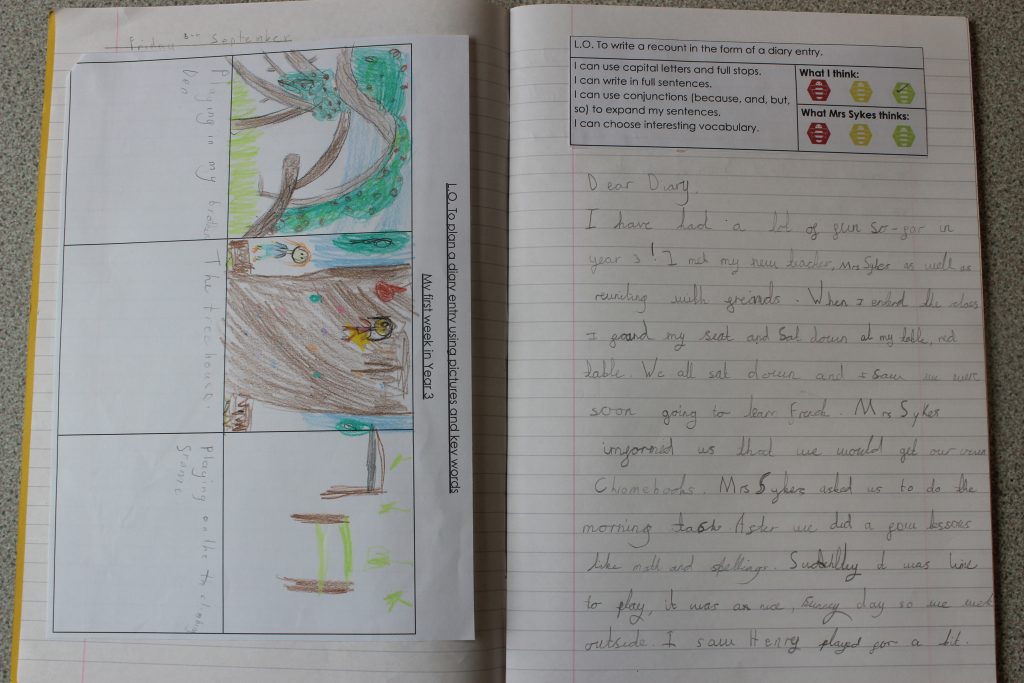 Friday 3rd September
L.O. To plan a diary entry using pictures and key words
My first week in Year 3
Playing in my
Den
The tree house.
Playing on the
frame
L.O. To write a recount in the form of a diary entry.
I can use capital letters and full stops.
I can write in full sentences.
I can use conjunctions (because, and, but,
so) to expand my sentences.
I can choose interesting vocabulary.
What I think:
What Mrs Sykes thinks:
Dear Diary,
I have had a lot of fun so-far in
year 3! I met my new teacher, Mrs Sykes as well as
reuniting with freinds. When I enterd the class
I found my seat and Sat down at my table, red
table. We all sat down and I saw we were
soon going to learn French. Mrs Sykes
informed us that we would get our own
Chromebooks. Mrs Sykes asked us to do the
morning task. After we did a few lessons
like math and spellings. it was time
to play, it was a nice, Sunny day so we went
outside. I saw Henry played for a bit.